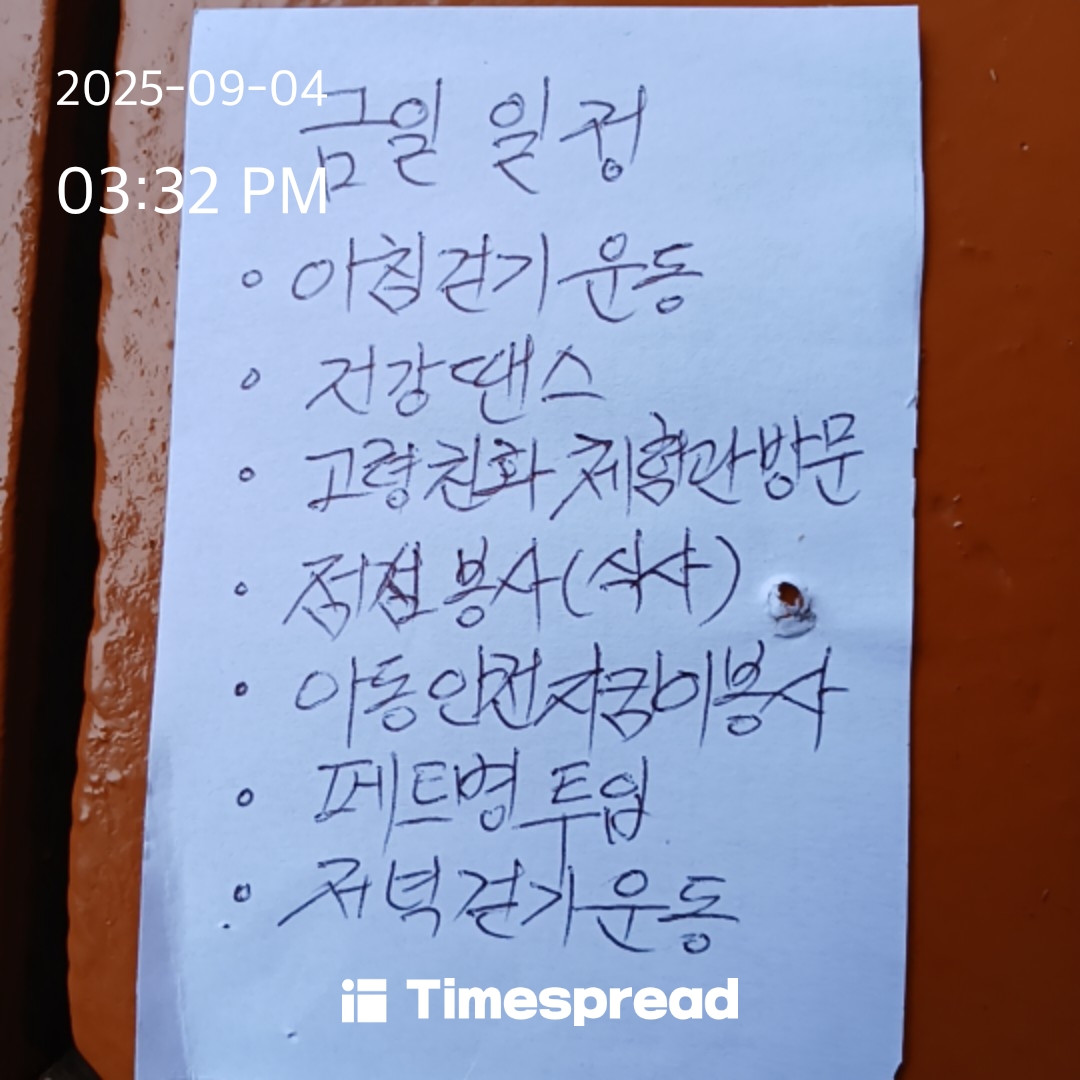 2025-09-04
03:32 PM
금일 일정
아침걷기 운동
저강댄스
고령친화 체험관방문
점검 봉사(식사)
아동안전지킴이봉사
페트병 투입
저녁걷기운동
Timespread